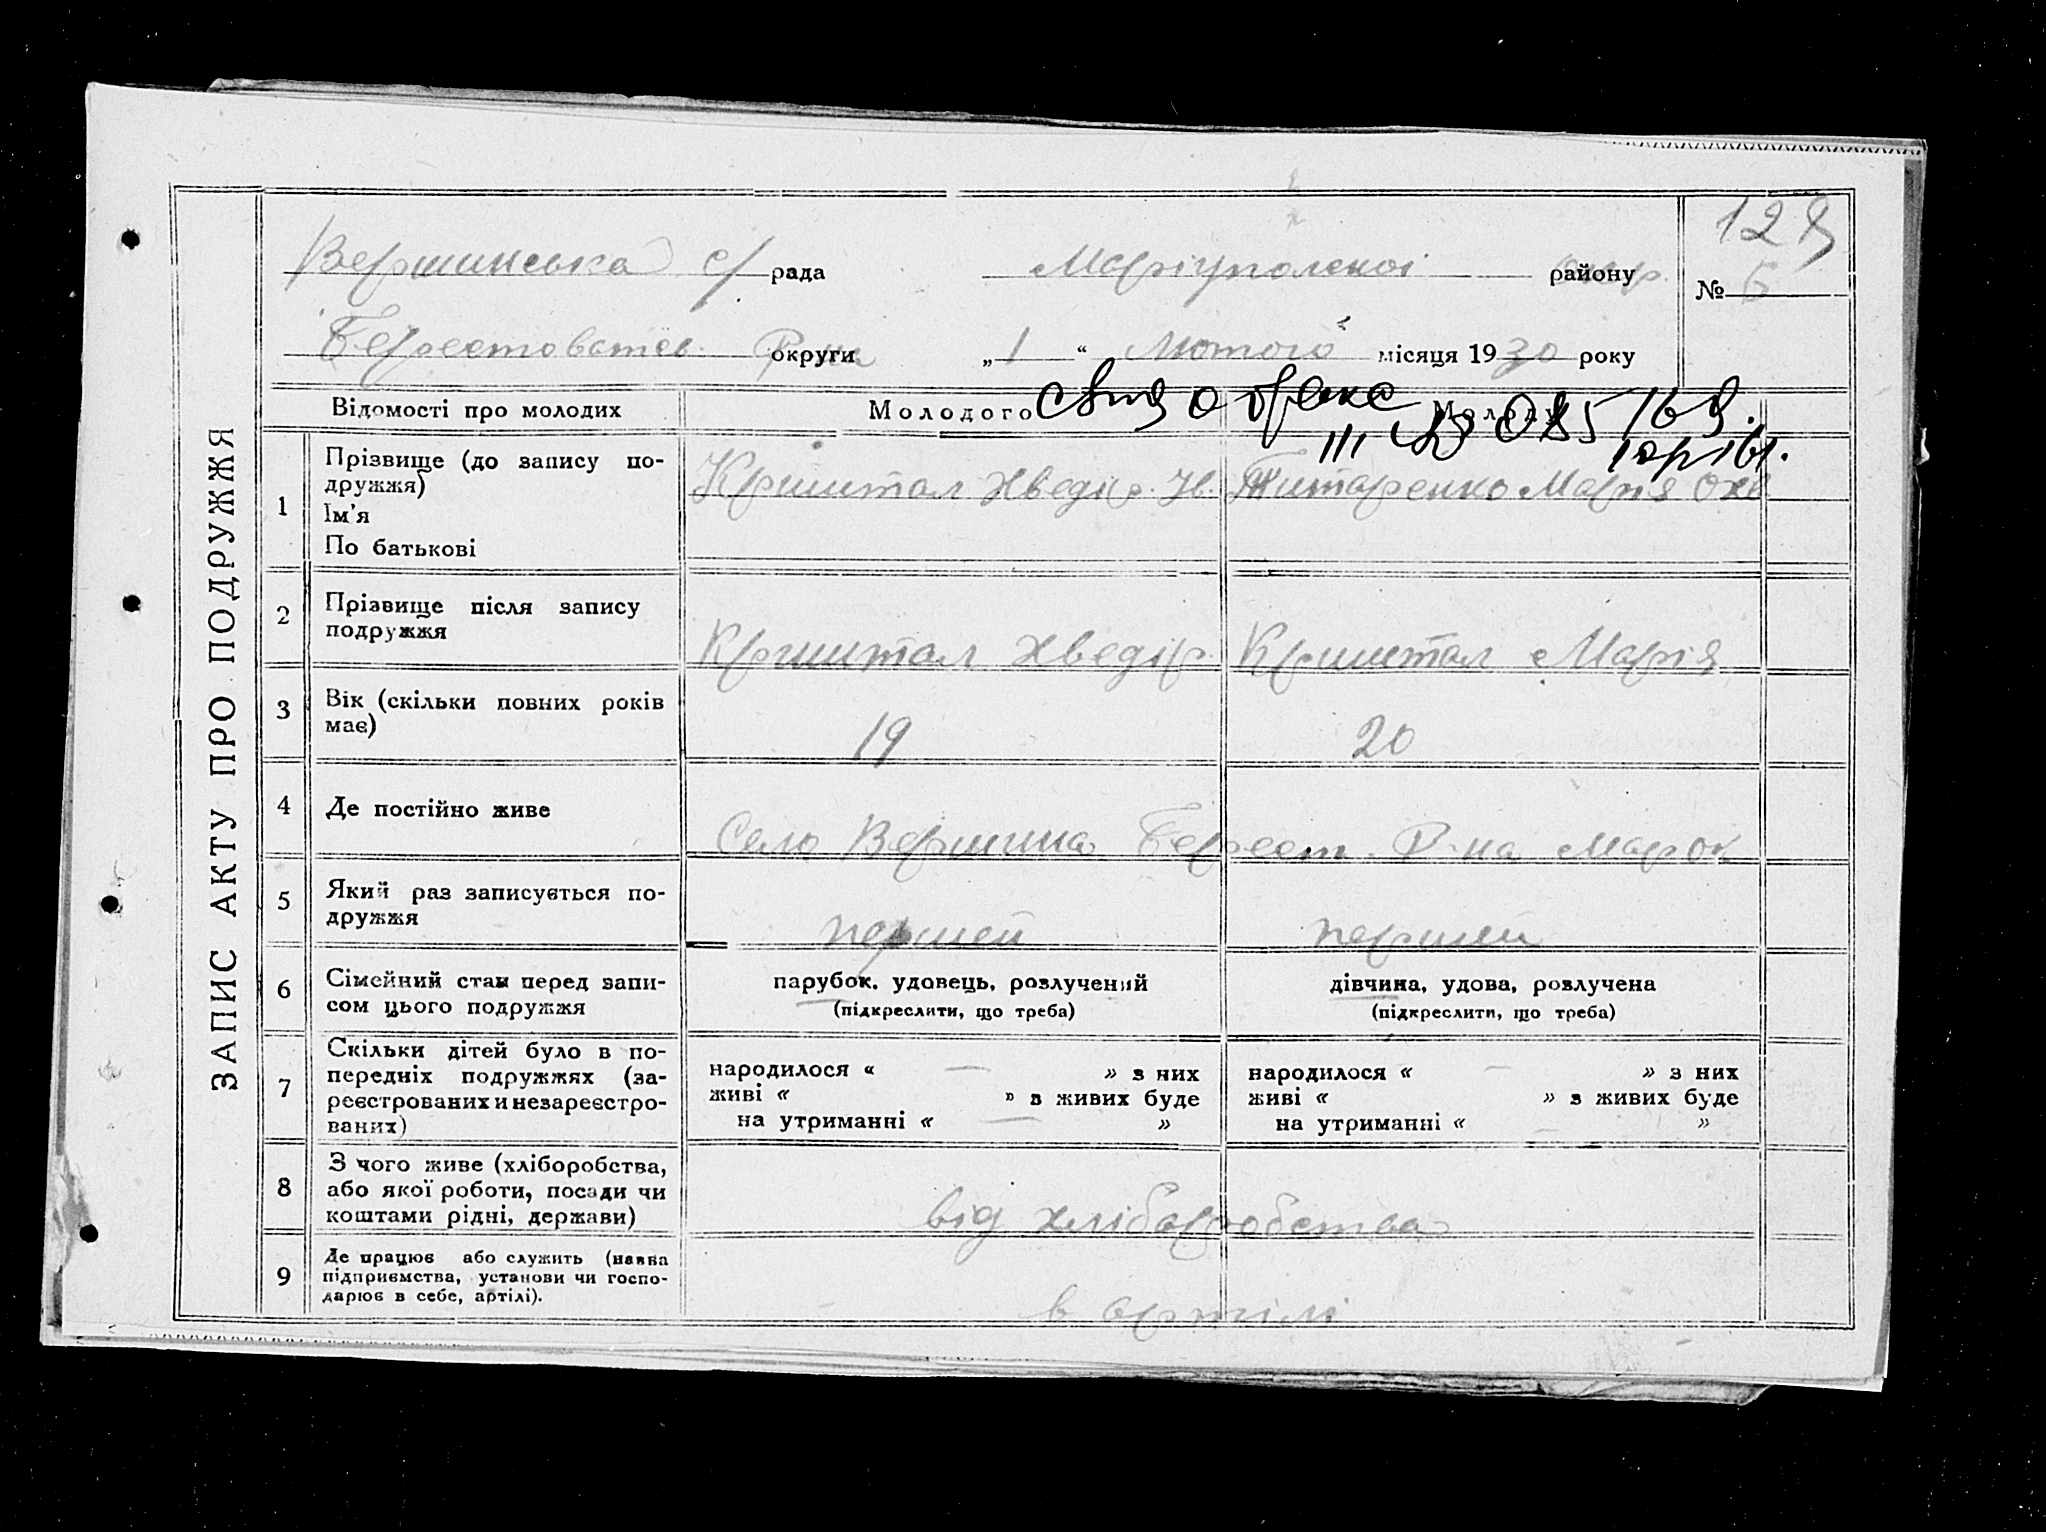 129
Вершинська с/рада Маріупольскої району окр. № 5
Берестоватсв. округи Р-на „ 1 “ Лютого місяця 1930 року
ЗАПИС АКТУ ПРО ПОДРУЖЖЯ
Відомості про молодих Молодого Молодої
о браке
III
1 Прізвище (до запису по-
дружжя)
Ім’я
По батькові
Криштал Хведір Ів. Титаренко Марія Охв
2 Прізвище після запису
подружжя
Криштал Хведір Криштал Марія
3 Вік (скільки повних років
має)
19 20
4 Де постійно живе
Село Вершина Берест. Р-на Мар ок
5 Який раз записується по-
дружжя
першей першей
6 Сімейний стан перед запи-
сом цього подружжя
парубок, удовець, розлучений дівчина, удова, розлучена
(підкреслити, що треба) (підкреслити, що треба)
7 Скільки дітей було в по-
передніх подружжях (за-
реєстрованих и незареєстро-
ваних)
народилося « — » з них народилося « — » з них
живі « » з живих буде живі « » з живих буде
на утриманні « — » на утриманні « — »
8 З чого живе (хліборобства,
або якої роботи, посади чи
коштами рідні, держави)
від хліборобства
9 Де працює або служить (назва
підприємства, установи чи госпо-
дарює в себе, артілі).
в артілі